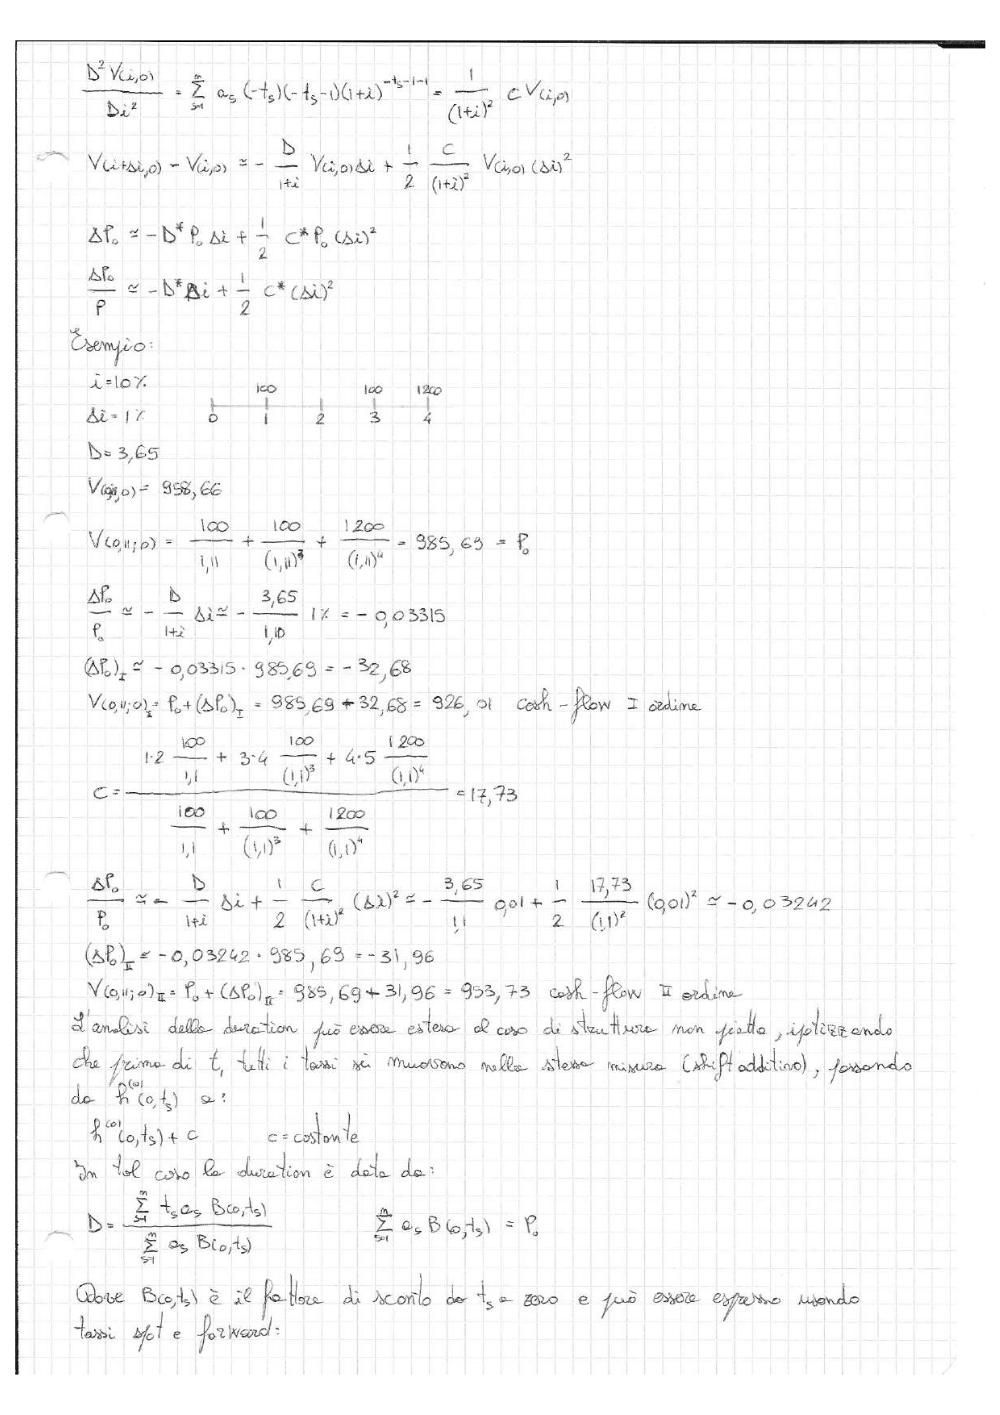 D²V(i,0)/Di² = Σ_{s=1}^{m} a_s (-t_s)(-t_s-1)(1+i)^{-t_s-1-1} = 1/(1+i)² C V(i,0)
V(i+Δi,0) - V(i,0) ≃ - D/(1+i) V(i,0)Δi + 1/2 C/(1+i)² V(i,0)(Δi)²
ΔP₀ ≃ -D* P₀ Δi + 1/2 C* P₀ (Δi)²
ΔP₀/P ≃ -D* Δi + 1/2 C* (Δi)²
Esempio:
i=10%
100 100 1200
Δi=1% 0 1 2 3 4
D=3,65
V( ,0)= 958,66
V(0,11;0) = 100/1,11 + 100/(1,11)³ + 1200/(1,11)⁴ = 985,69 = P₀
ΔP₀/P₀ ≃ - D/(1+i) Δi ≃ - 3,65/1,10 1% = -0,03315
(ΔP₀)_I ≃ -0,03315 · 985,69 = -32,68
V(0,11;0)_I = P₀+(ΔP₀)_I = 985,69 + 32,68 = 926,01 cash-flow I ordine
C = (1·2 100/1,1 + 3·4 100/(1,1)³ + 4·5 1200/(1,1)⁴) / (100/1,1 + 100/(1,1)³ + 1200/(1,1)⁴) = 17,73
ΔP₀/P₀ ≃ - D/(1+i) Δi + 1/2 C/(1+i)² (Δi)² ≃ - 3,65/1,1 0,01 + 1/2 17,73/(1,1)² (0,01)² ≃ -0,03242
(ΔP₀)_II ≃ -0,03242 · 985,69 = -31,96
V(0,11;0)_II = P₀ + (ΔP₀)_II = 985,69 + 31,96 = 953,73 cash-flow II ordine
L'analisi della duration può essere estesa al caso di struttura non piatta, ipotizzando
che prima di t₁ tutti i tassi si muovono nella stessa misura (shift additivo), passando
da h^(0)(0,t_s) a:
h^(0)(0,t_s) + c c=costante
In tal caso la duration è data da:
D = Σ_{s=1}^{m} t_s a_s B(0,t_s) / Σ_{s=1}^{m} a_s B(0,t_s) Σ_{s=1}^{m} a_s B(0,t_s) = P₀
Dove B(0,t_s) è il fattore di sconto da t_s a zero e può essere espresso usando
tassi spot e forward: